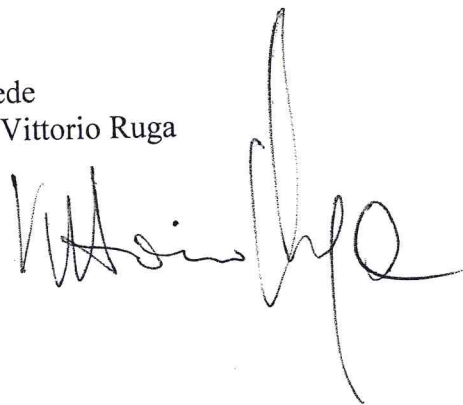 ede
Vittorio Ruga
Vittorio Ruga